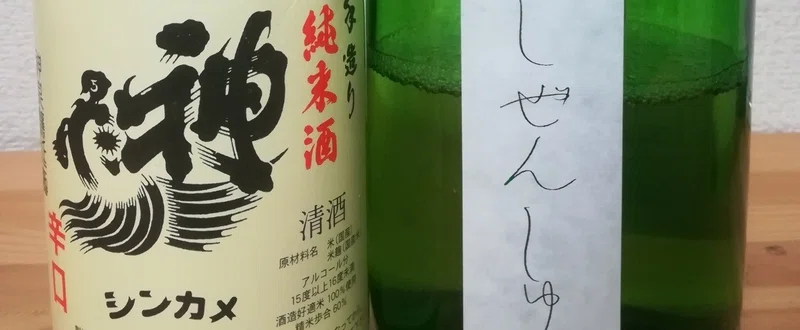 手造り
純米酒
神亀
辛口
シンカメ
清酒
原材料名 米(国産)
米麹(国産米)
アルコール分
15度以上16度未満
酒造好適米100%使用
精米歩合60%
しぜんしゅ